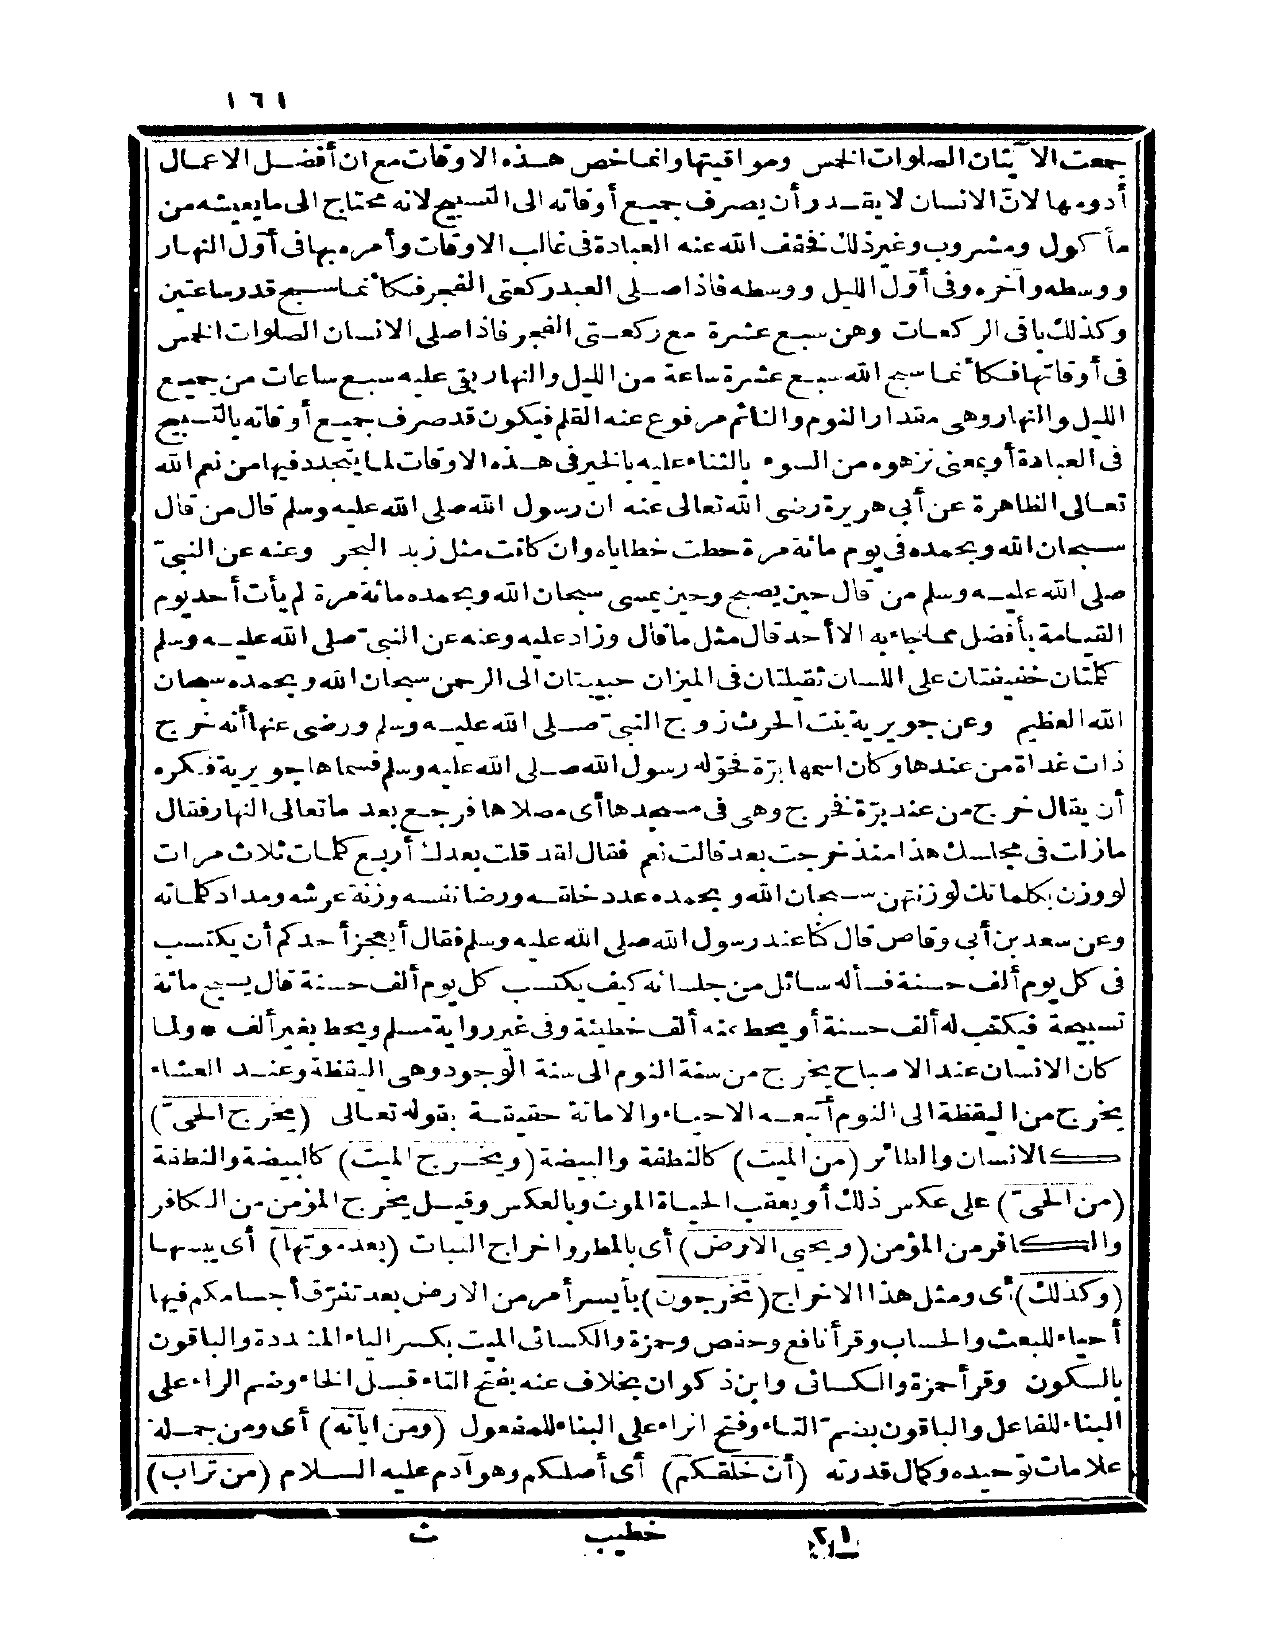 ١٦١
جمعت الآيتان الصلوات الخمس ومواقيتها وانما خص هذه الاوقات مع ان أفضل الاعمال
أدومها لانّ الانسان لا يقدر أن يصرف جميع أوقاته الى التسبيح لانه محتاج الى ما يعيشه من
مأكول ومشروب وغير ذلك فخفف الله عنه العبادة فى غالب الاوقات وأمره بها فى أوّل النهار
ووسطه وآخره وفى أوّل الليل ووسطه فاذا صلى العبد ركعتى الفجر فكأنما سبح قدر ساعتين
وكذلك باقى الركعات وهن سبع عشرة مع ركعتى الفجر فاذا صلى الانسان الصلوات الخمس
فى أوقاتها فكأنما سبح الله سبع عشرة ساعة من الليل والنهار بقى عليه سبع ساعات من جميع
الليل والنهار وهى مقدار النوم والنائم مرفوع عنه القلم فيكون قد صرف جميع أوقاته بالتسبيح
فى العبادة أو بمعنى نزهوه من السوء بالثناء عليه بالخير فى هذه الاوقات لما يتجدد فيها من نعم الله
تعالى الظاهرة عن أبى هريرة رضى الله تعالى عنه ان رسول الله صلى الله عليه وسلم قال من قال
سبحان الله وبحمده فى يوم مائة مرة حطت خطاياه وان كانت مثل زبد البحر وعنه عن النبىّ
صلى الله عليه وسلم من قال حين يصبح وحين يمسى سبحان الله وبحمده مائة مرة لم يأت أحد يوم
القيامة بأفضل مما جاء به الا أحد قال مثل ما قال وزاد عليه وعنه عن النبىّ صلى الله عليه وسلم
كلمتان خفيفتان على اللسان ثقيلتان فى الميزان حبيبتان الى الرحمن سبحان الله وبحمده سبحان
الله العظيم وعن جويرية بنت الحرث زوج النبىّ صلى الله عليه وسلم ورضى عنها أنه خرج
ذات غداة من عندها وكان اسمها برّة فحوّله رسول الله صلى الله عليه وسلم فسماها جويرية فكره
أن يقال خرج من عند برّة فخرج وهى فى مسجدها أى مصلاها فرجع بعد ما تعالى النهار فقال
مازلت فى مجلسك هذا منذ خرجت بعد قالت نعم فقال لقد قلت بعدك أربع كلمات ثلاث مرات
لو وزن بكلماتك لوزنتهن سبحان الله وبحمده عدد خلقه ورضا نفسه وزنة عرشه ومداد كلماته
وعن سعد بن أبى وقاص قال كنا عند رسول الله صلى الله عليه وسلم فقال أيعجز أحدكم أن يكتسب
فى كل يوم ألف حسنة فسأله سائل من جلسائه كيف يكتسب كل يوم ألف حسنة قال يسبح مائة
تسبيحة فيكتب له ألف حسنة أو يحط عنه ألف خطيئة وفى غير رواية مسلم ويحط بغير ألف * ولما
كان الانسان عند الاصباح يخرج من سنة النوم الى سنة الوجود وهى اليقظة وعند العشاء
يخرج من اليقظة الى النوم أتبعه الاحياء والاماتة حقيقة بقوله تعالى (يخرج الحىّ)
كالانسان والطائر (من الميت) كالنطفة والبيضة (ويخرج الميت) كالبيضة والنطفة
(من الحىّ) على عكس ذلك أو يعقب الحياة الموت وبالعكس وقيل يخرج المؤمن من الكافر
والكافر من المؤمن (ويحيى الارض) أى بالمطر واخراج النبات (بعد موتها) أى يبسها
(وكذلك) أى ومثل هذا الاخراج (تخرجون) بأيسر أمر من الارض بعد تفرّق أجسامكم فيها
أحياء للبعث والحساب وقرأ نافع وحفص وحمزة والكسائى الميت بكسر الياء المشددة والباقون
بالسكون وقرأ حمزة والكسائى وابن ذكوان بخلاف عنه بفتح التاء قبل الخاء وضم الراء على
البناء للفاعل والباقون بضم التاء وفتح الراء على البناء للمفعول (ومن آياته) أى ومن جملة
علامات توحيده وكمال قدرته (أن خلقكم) أى أصلكم وهو آدم عليه السلام (من تراب)
خطيب ث